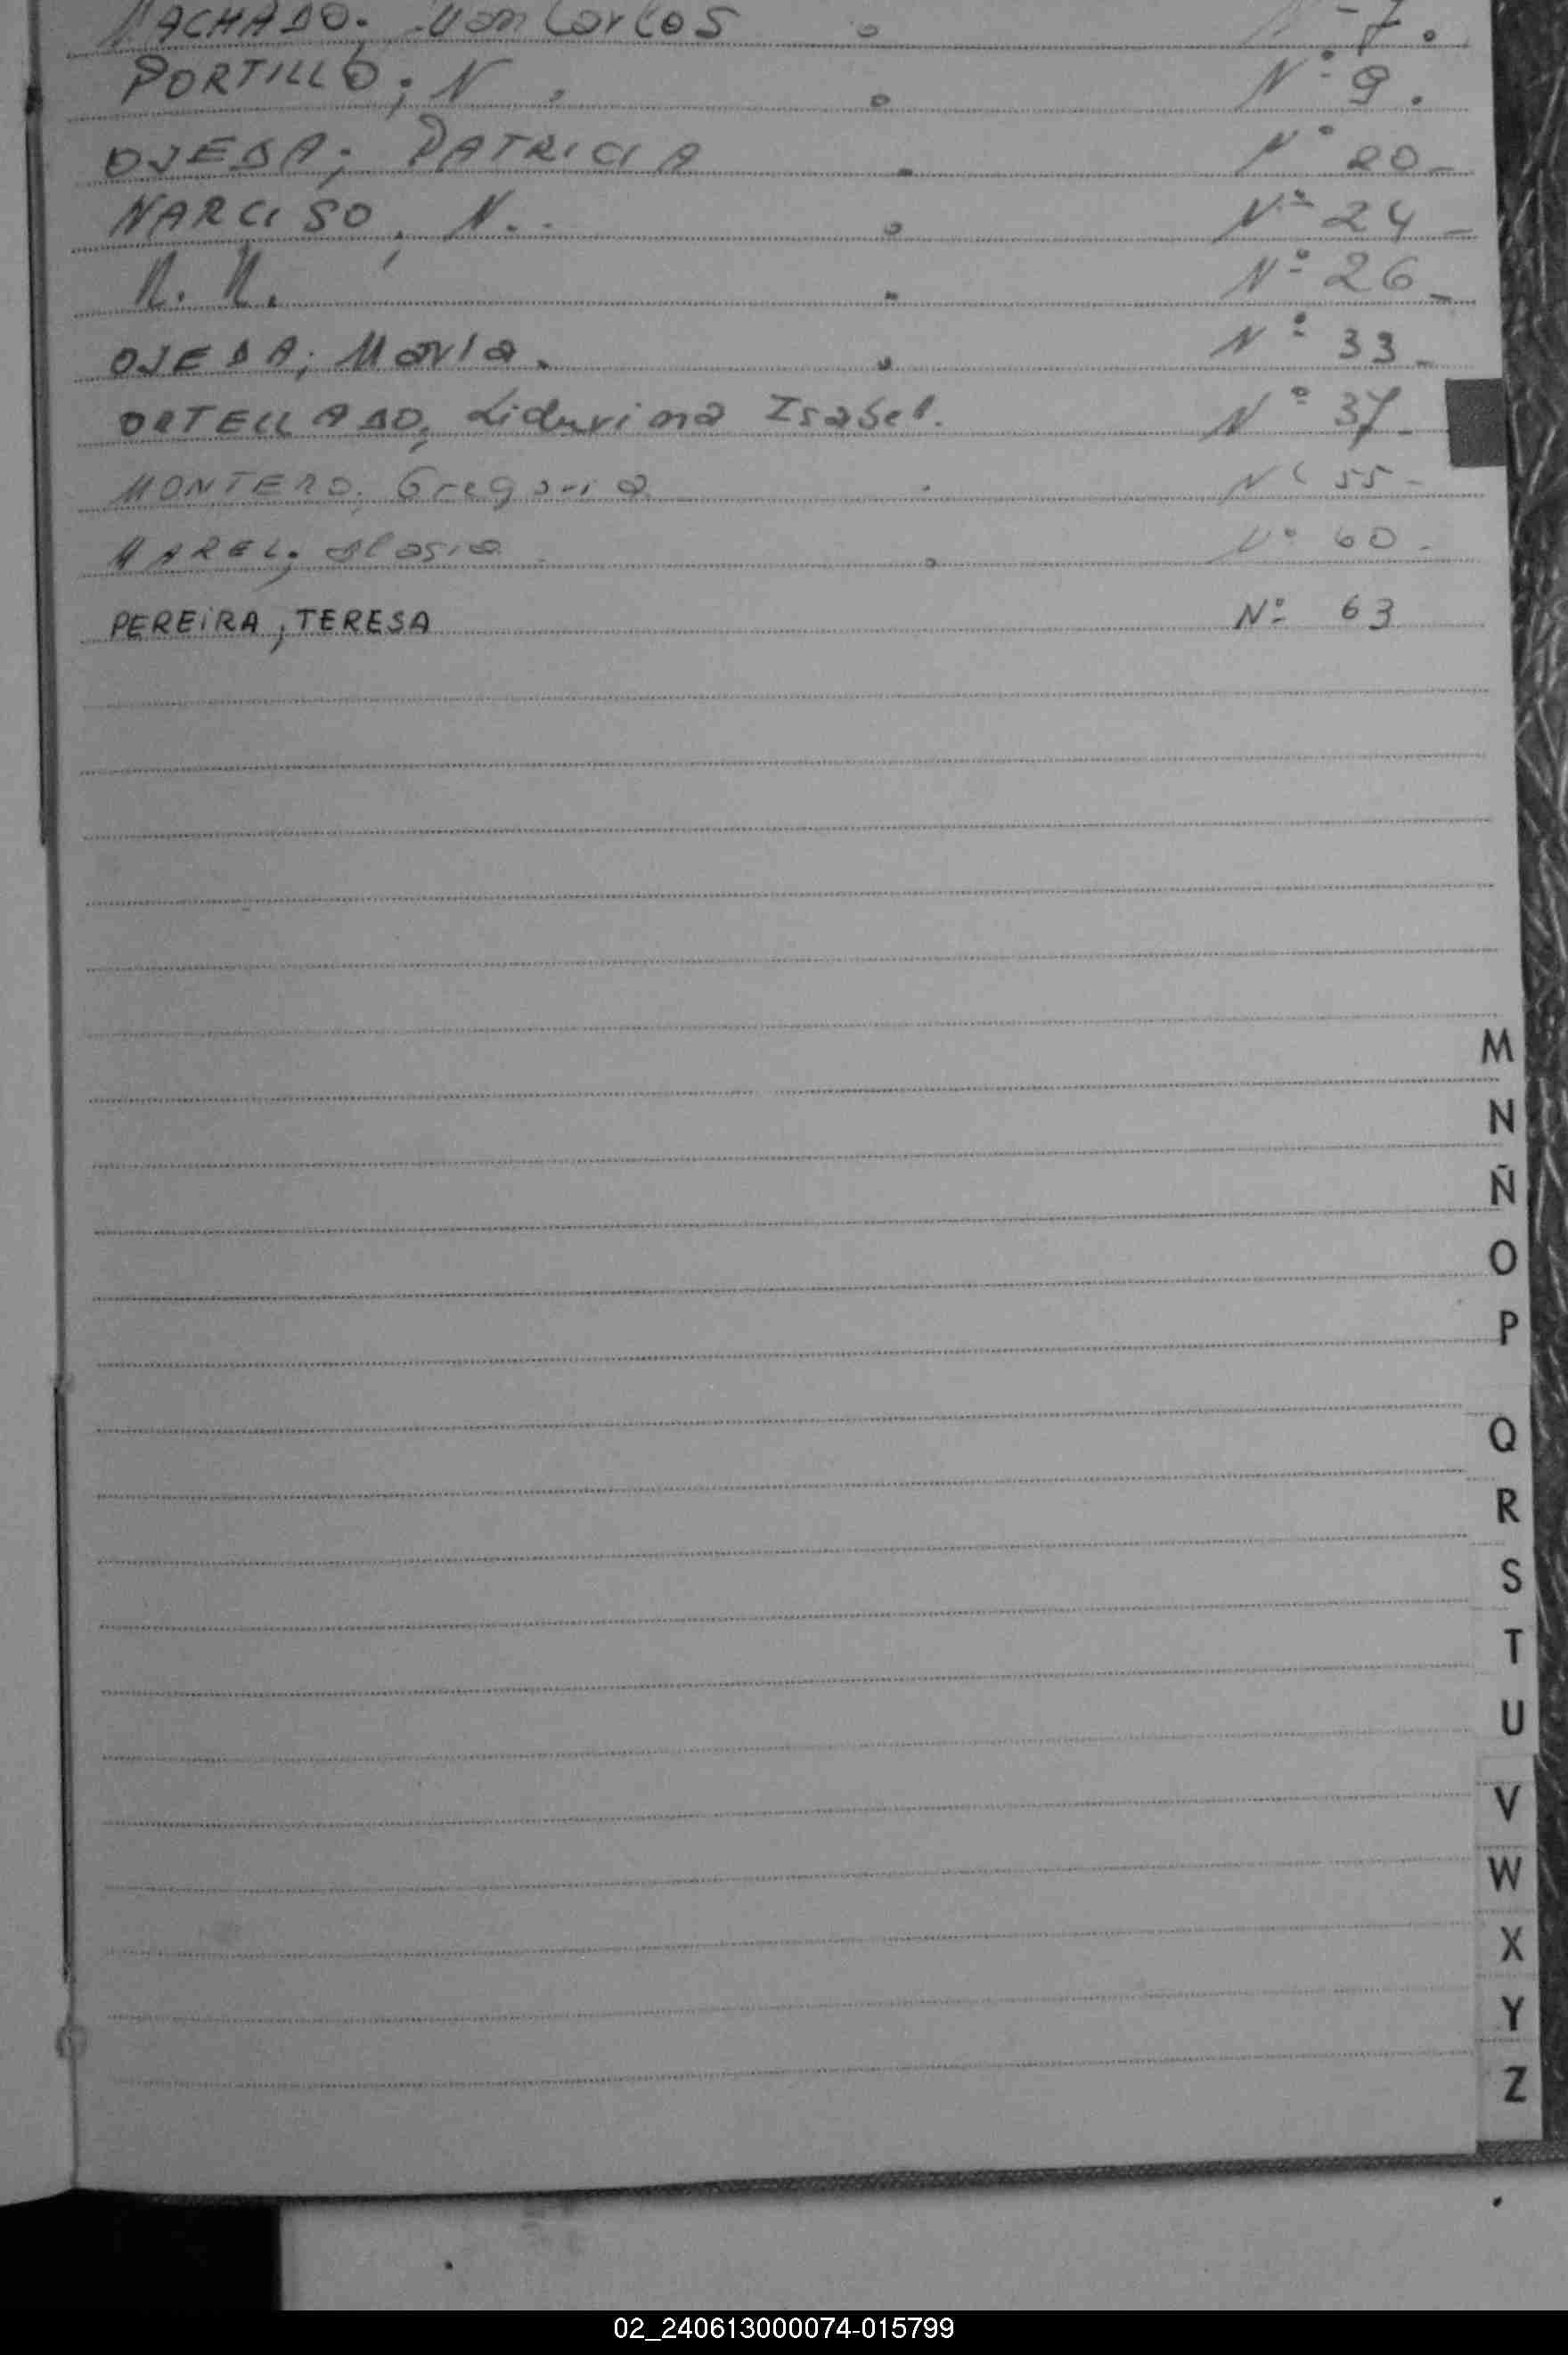 MACHADO. Juan Carlos . Nº 7.
PORTILLO; N. . Nº 9.
OJEDA; PATRICIA . Nº 20-
NARCISO, N.. . Nº 24-
N. N. . Nº 26-
OJEDA; María. . Nº 33-
ORTELLADO, Lidurina Isabel. Nº 37-
MONTERO. Gregoria . Nº 55-
MAREL; Blasia . Nº 60-
PEREIRA; TERESA Nº 63
M
N
Ñ
O
P
Q
R
S
T
U
V
W
X
Y
Z
02_240613000074-015799